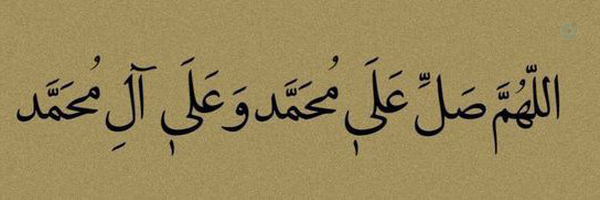 اللّهُمَّ صَلِّ عَلَی مُحَمَّد وَعَلَی آلِ مُحَمَّد